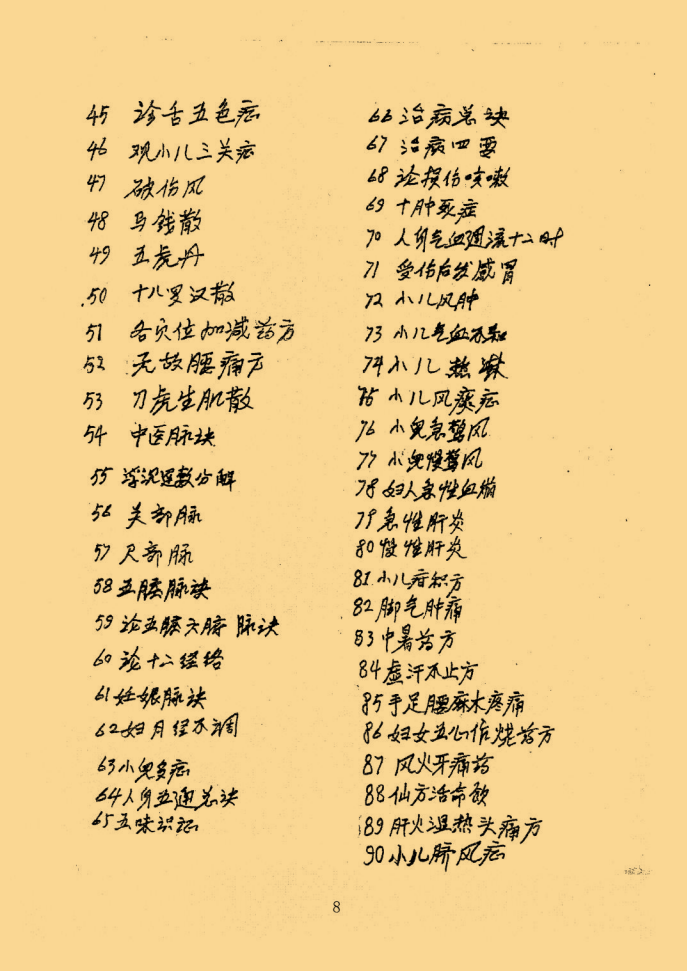 45 诊舌五色症
46 观小儿三关症
47 破伤风
48 马钱散
49 五虎丹
50 十八罗汉散
51 各穴位加减药方
52 无故腰痛方
53 刀虎生肌散
54 中医脉诀
55 浮沉迟数分解
56 关部脉
57 尺部脉
58 五脏脉诀
59 论五脏六腑脉诀
60 论十二经络
61 妊娠脉诀
62 妇月经不调
63 小儿多症
64 人身五通总诀
65 五味识症
66 治病总诀
67 治病四要
68 论损伤咳嗽
69 十肿死症
70 人身气血週流十二时
71 受伤后发感冒
72 小儿风肿
73 小儿气血不和
74 小儿热淋
75 小儿风痰症
76 小兒急驚风
77 小兒慢驚风
78 妇人急性血崩
79 急性肝炎
80 慢性肝炎
81 小儿疳积方
82 脚气肿痛
83 中暑药方
84 虚汗不止方
85 手足腰麻木疼痛
86 妇女五心作烧药方
87 风火牙痛药
88 仙方活命飲
89 肝火湿热头痛方
90 小儿脐风症
8